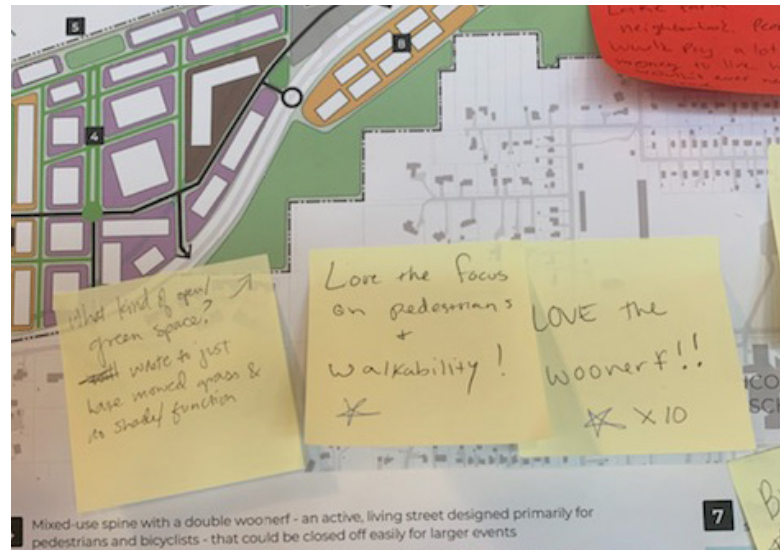 5
8
4
neighborhood. Peo
would pay a lot
money to live
What kind of open/
green space?
waste to just
have mowed grass &
no shade/function
Love the focus
on pedestrians
+
walkability!
LOVE the
woonerf!!
x10
ICO
SCH
B
Mixed-use spine with a double woonerf - an active, living street designed primarily for
pedestrians and bicyclists - that could be closed off easily for larger events
7